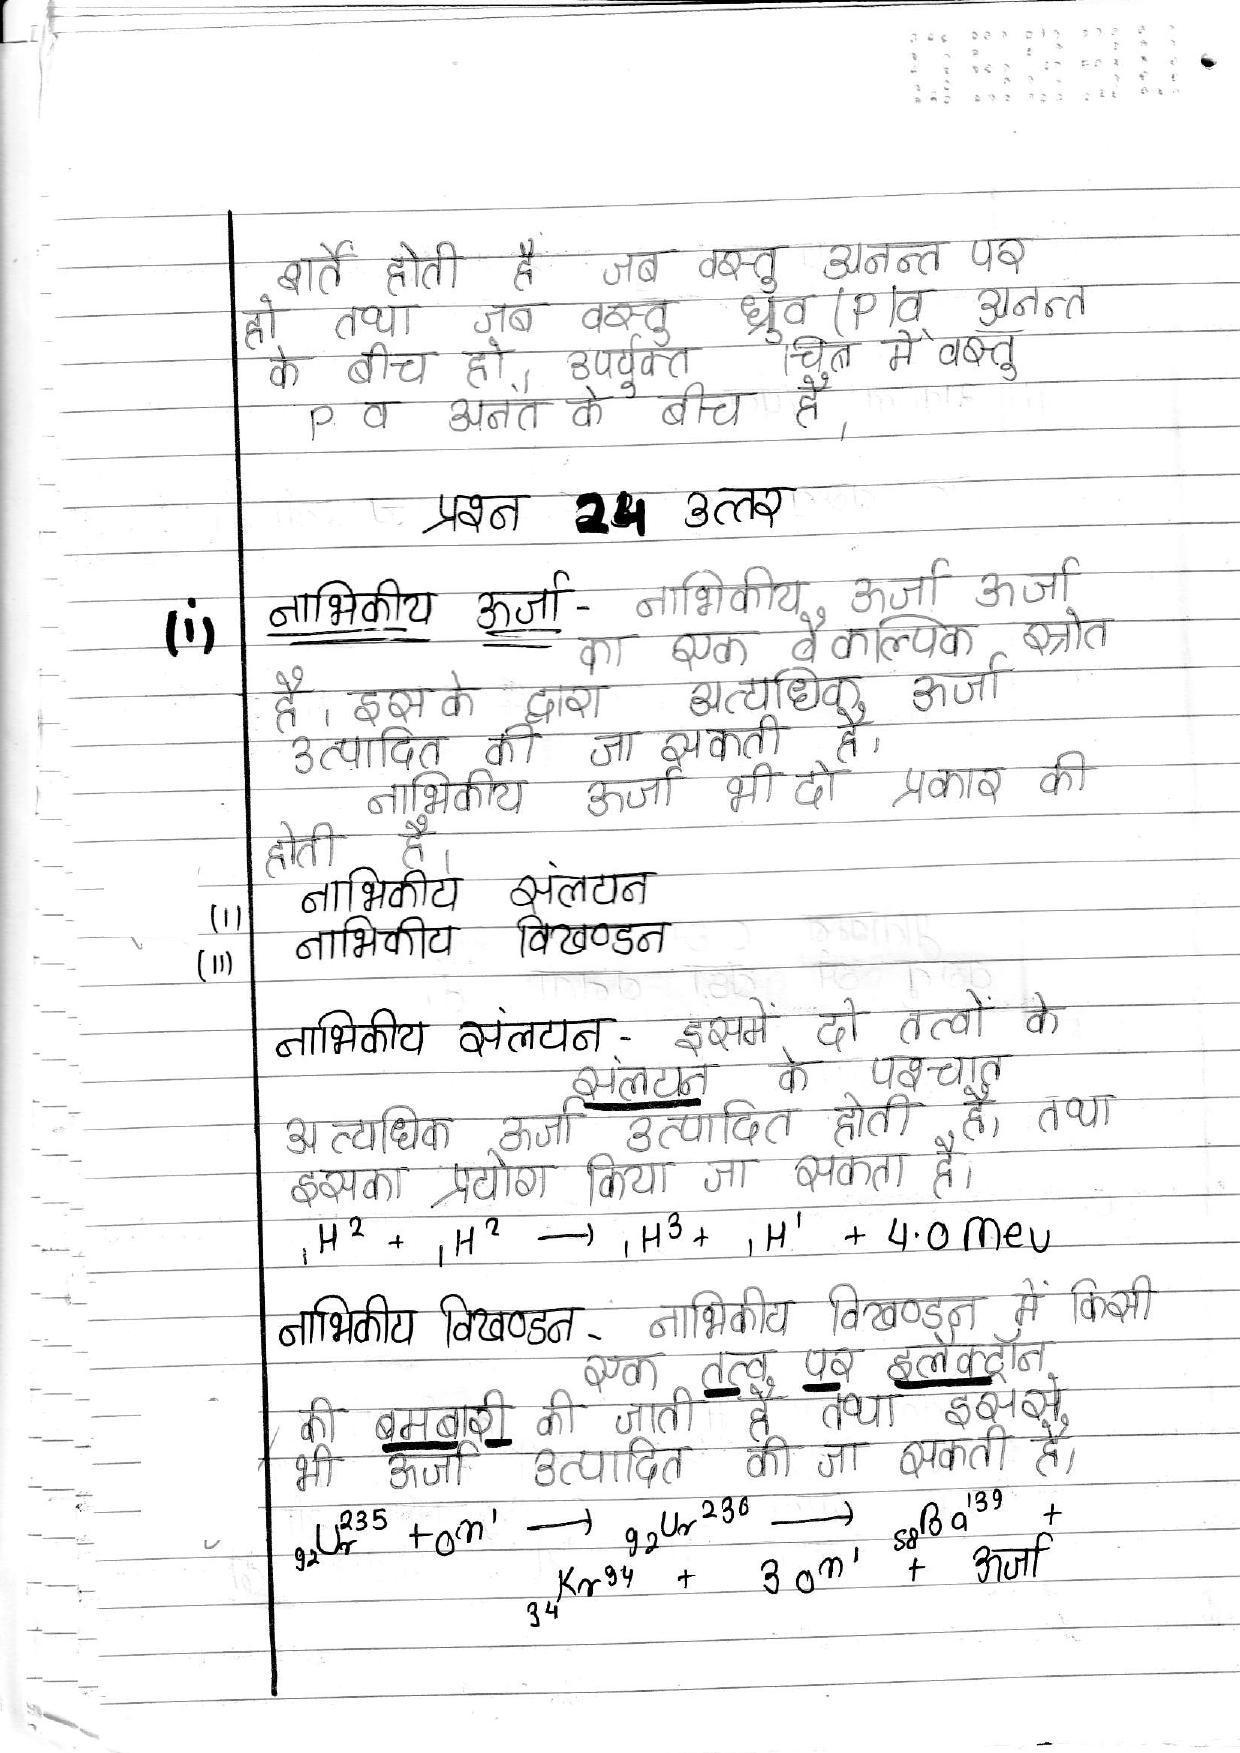 शर्ते होती है जब वस्तु अनन्त पर
हो तथा जब वस्तु ध्रुव (P)व अनन्त
के बीच हो, उपर्युक्त चित्र में वस्तु
P व अनंत के बीच है,
प्रश्न 24 उत्तर
(i) नाभिकीय ऊर्जा - नाभिकीय ऊर्जा ऊर्जा
का एक वैकल्पिक स्त्रोत
है। इसके द्वारा अत्यधिक ऊर्जा
उत्पादित की जा सकती है।
नाभिकीय ऊर्जा भी दो प्रकार की
होती है।
(I) नाभिकीय संलयन
(II) नाभिकीय विखण्डन
नाभिकीय संलयन - इसमें दो तत्वों के
संलयन के पश्चात्
अत्यधिक ऊर्जा उत्पादित होती है, तथा
इसका प्रयोग किया जा सकता है।
₁H² + ₁H² → ₁H³ + ₁H¹ + 4.0 Mev
नाभिकीय विखण्डन - नाभिकीय विखण्डन में किसी
एक तत्व पर इलेक्ट्रॉन
की बमबारी की जाती है तथा इससे
भी ऊर्जा उत्पादित की जा सकती है,
₉₂Ur²³⁵ + ₀n¹ → ₉₂Ur²³⁶ → ₅₈Ba¹³⁹ +
₃₄Kr⁹⁴ + 3 ₀n¹ + ऊर्जा